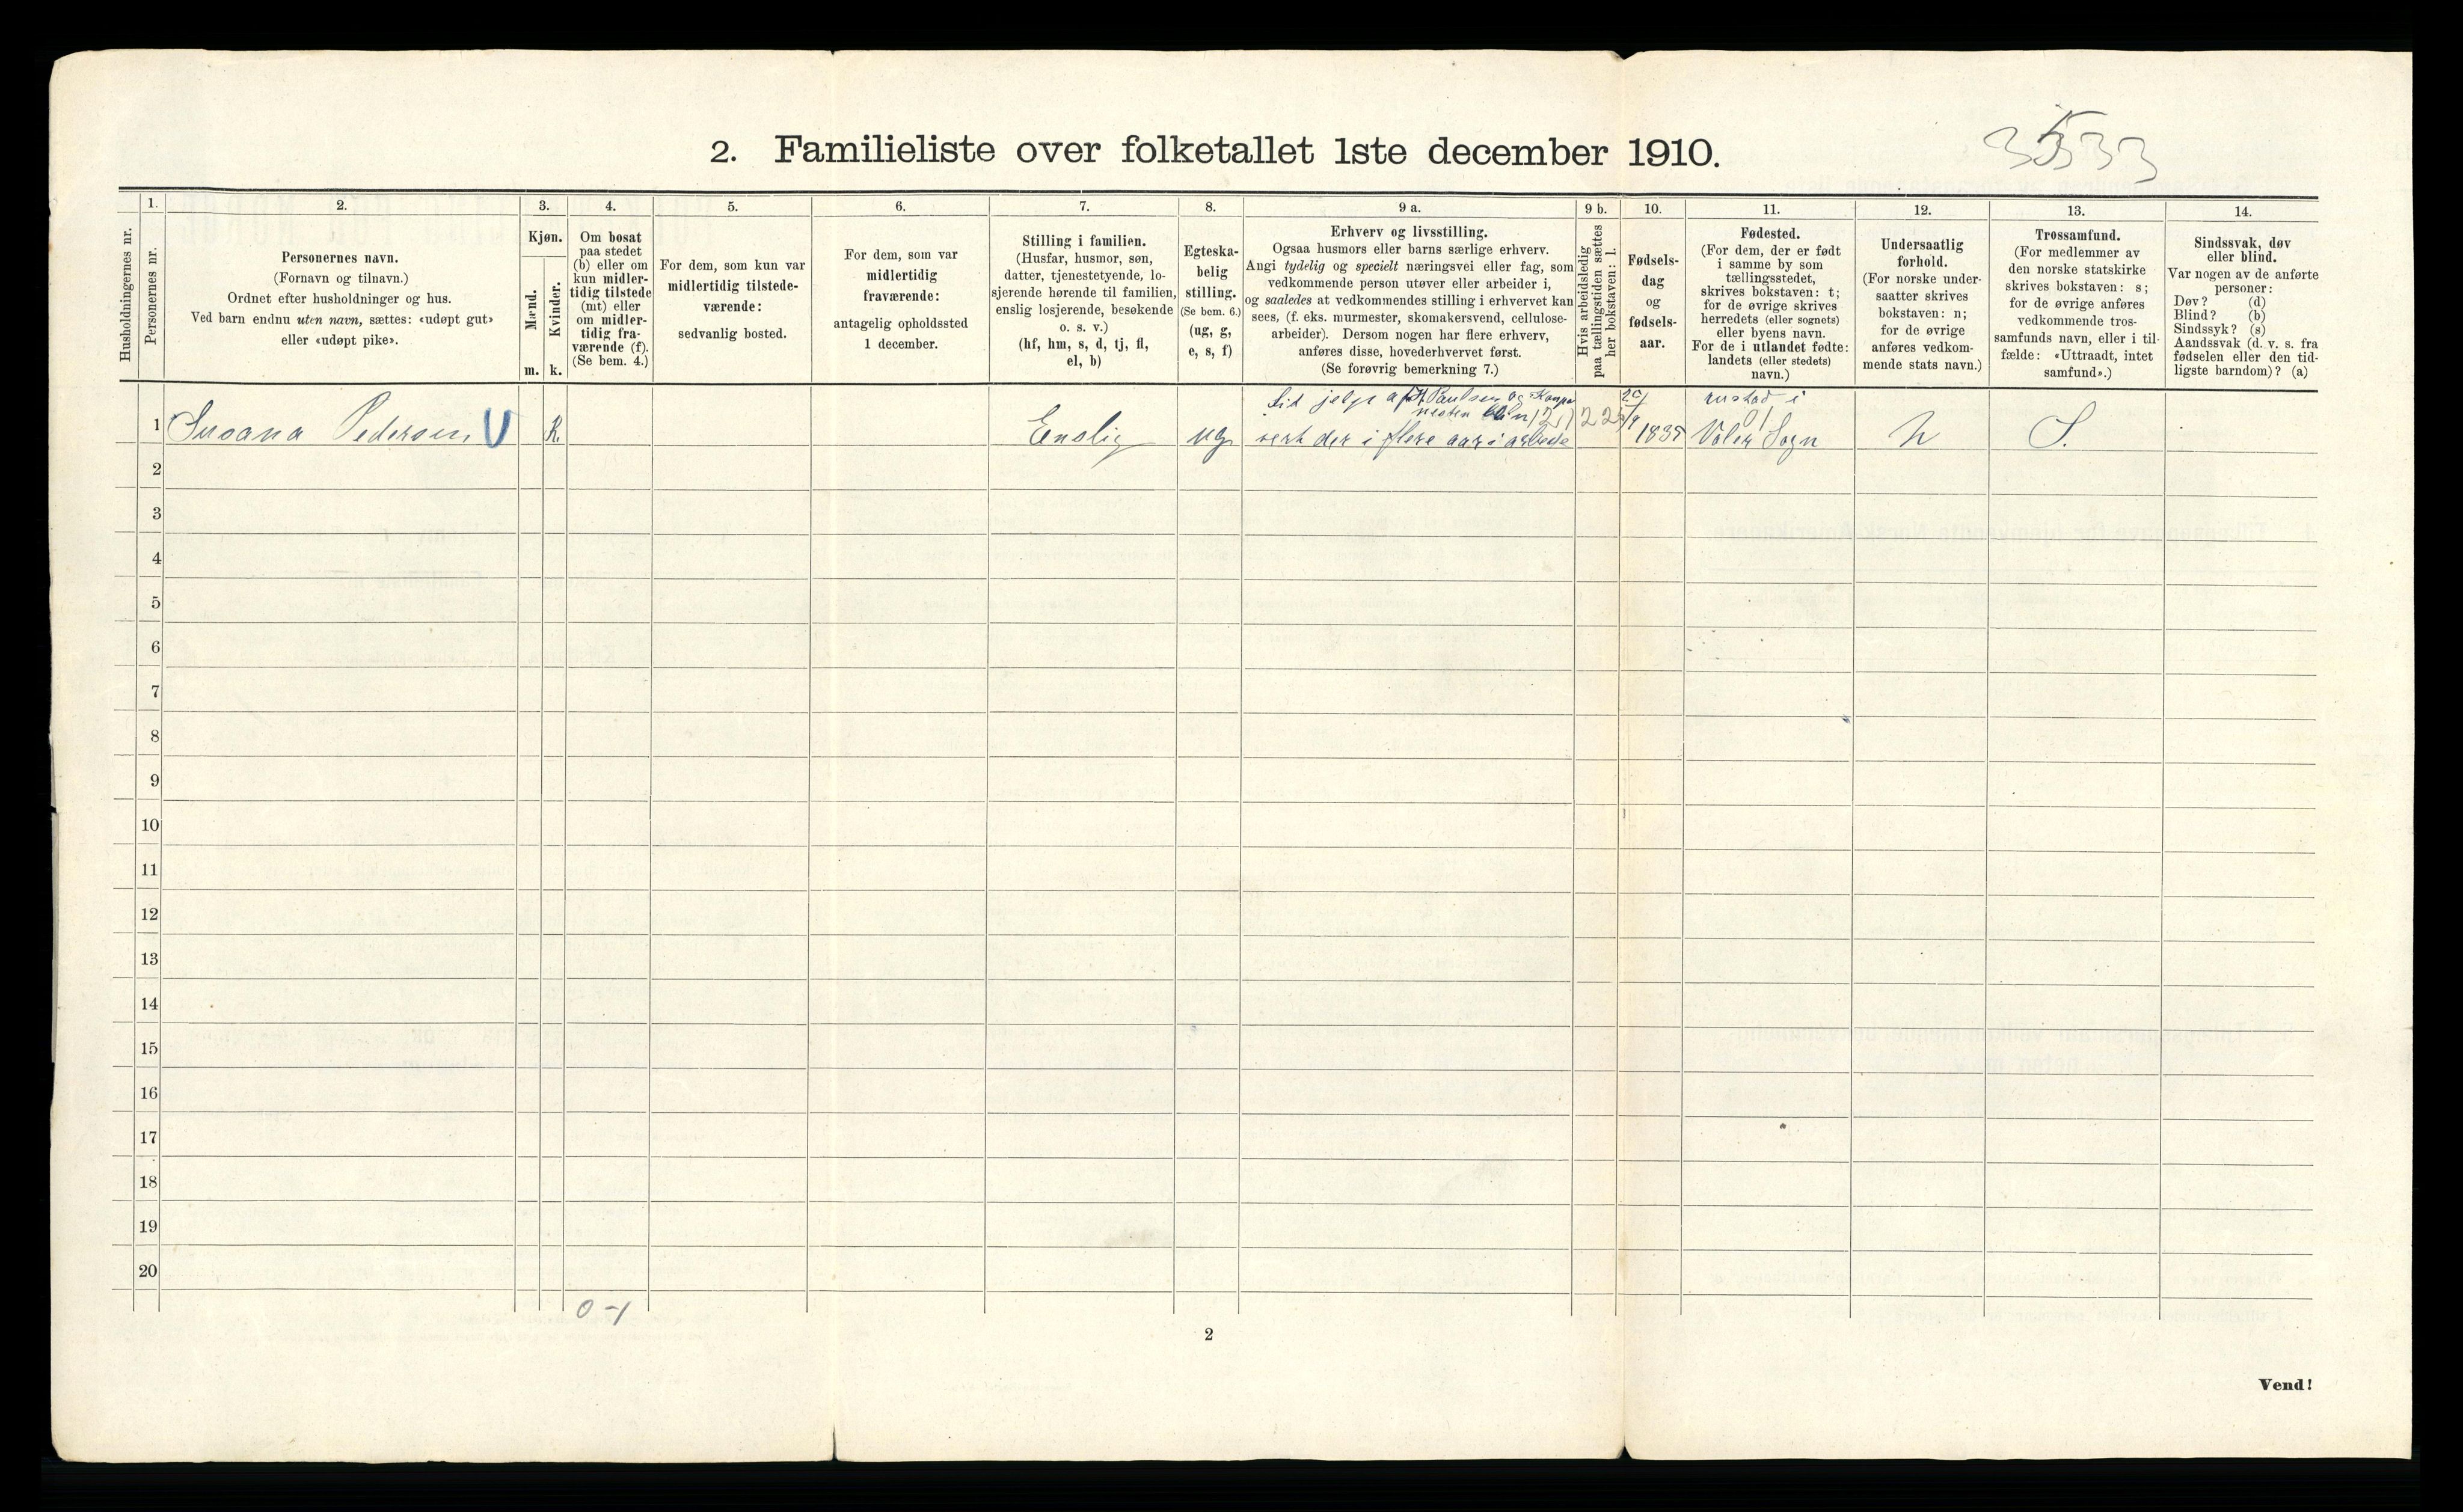 2. Familieliste over folketallet 1ste december 1910.
Husholdningernes nr.
1.
Personernes nr.
2.
Personernes navn.
(Fornavn og tilnavn.)
Ordnet efter husholdninger og hus.
Ved barn endnu uten navn, sættes: «udøpt gut»
eller «udøpt pike».
3.
Kjøn.
Mænd.
Kvinder.
m. k.
4.
Om bosat
paa stedet
(b) eller om
kun midler-
tidig tilstede
(mt) eller
om midler-
tidig fra-
værende (f).
(Se bem. 4.)
5.
For dem, som kun var
midlertidig tilstede-
værende:
sedvanlig bosted.
6.
For dem, som var
midlertidig
fraværende:
antagelig opholdssted
1 december.
7.
Stilling i familien.
(Husfar, husmor, søn,
datter, tjenestetyende, lo-
sjerende hørende til familien,
enslig losjerende, besøkende
o. s. v.)
(hf, hm, s, d, tj, fl,
el, b)
8.
Egteska-
belig
stilling.
(Se bem. 6.)
(ug, g,
e, s, f)
9 a.
Erhverv og livsstilling.
Ogsaa husmors eller barns særlige erhverv.
Angi tydelig og specielt næringsvei eller fag, som
vedkommende person utøver eller arbeider i,
og saaledes at vedkommendes stilling i erhvervet kan
sees, (f. eks. murmester, skomakersvend, cellulose-
arbeider). Dersom nogen har flere erhverv,
anføres disse, hovederhvervet først.
(Se forøvrig bemerkning 7.)
9 b.
Hvis arbeidsledig
paa tællingstiden sættes
her bokstaven: l.
10.
Fødsels-
dag
og
fødsels-
aar.
11.
Fødested.
(For dem, der er født
i samme by som
tællingsstedet,
skrives bokstaven: t;
for de øvrige skrives
herredets (eller sognets)
eller byens navn.
For de i utlandet fødte:
landets (eller stedets)
navn.)
12.
Undersaatlig
forhold.
(For norske under-
saatter skrives
bokstaven: n;
for de øvrige
anføres vedkom-
mende stats navn.)
13.
Trossamfund.
(For medlemmer av
den norske statskirke
skrives bokstaven: s;
for de øvrige anføres
vedkommende tros-
samfunds navn, eller i til-
fælde: «Uttraadt, intet
samfund».)
14.
Sindssvak, døv
eller blind.
Var nogen av de anførte
personer:
Døv? (d)
Blind? (b)
Sindssyk? (s)
Aandssvak (d. v. s. fra
fødselen eller den tid-
ligste barndom)? (a)
Paulsen og
rustad i
1 Susana Pedersen K. Enslig ug vert der i flere aar i arbede Voler Sogn N S.
2
3
4
5
6
7
8
9
10
11
12
13
14
15
16
17
18
19
20
0-1
2
Vend!